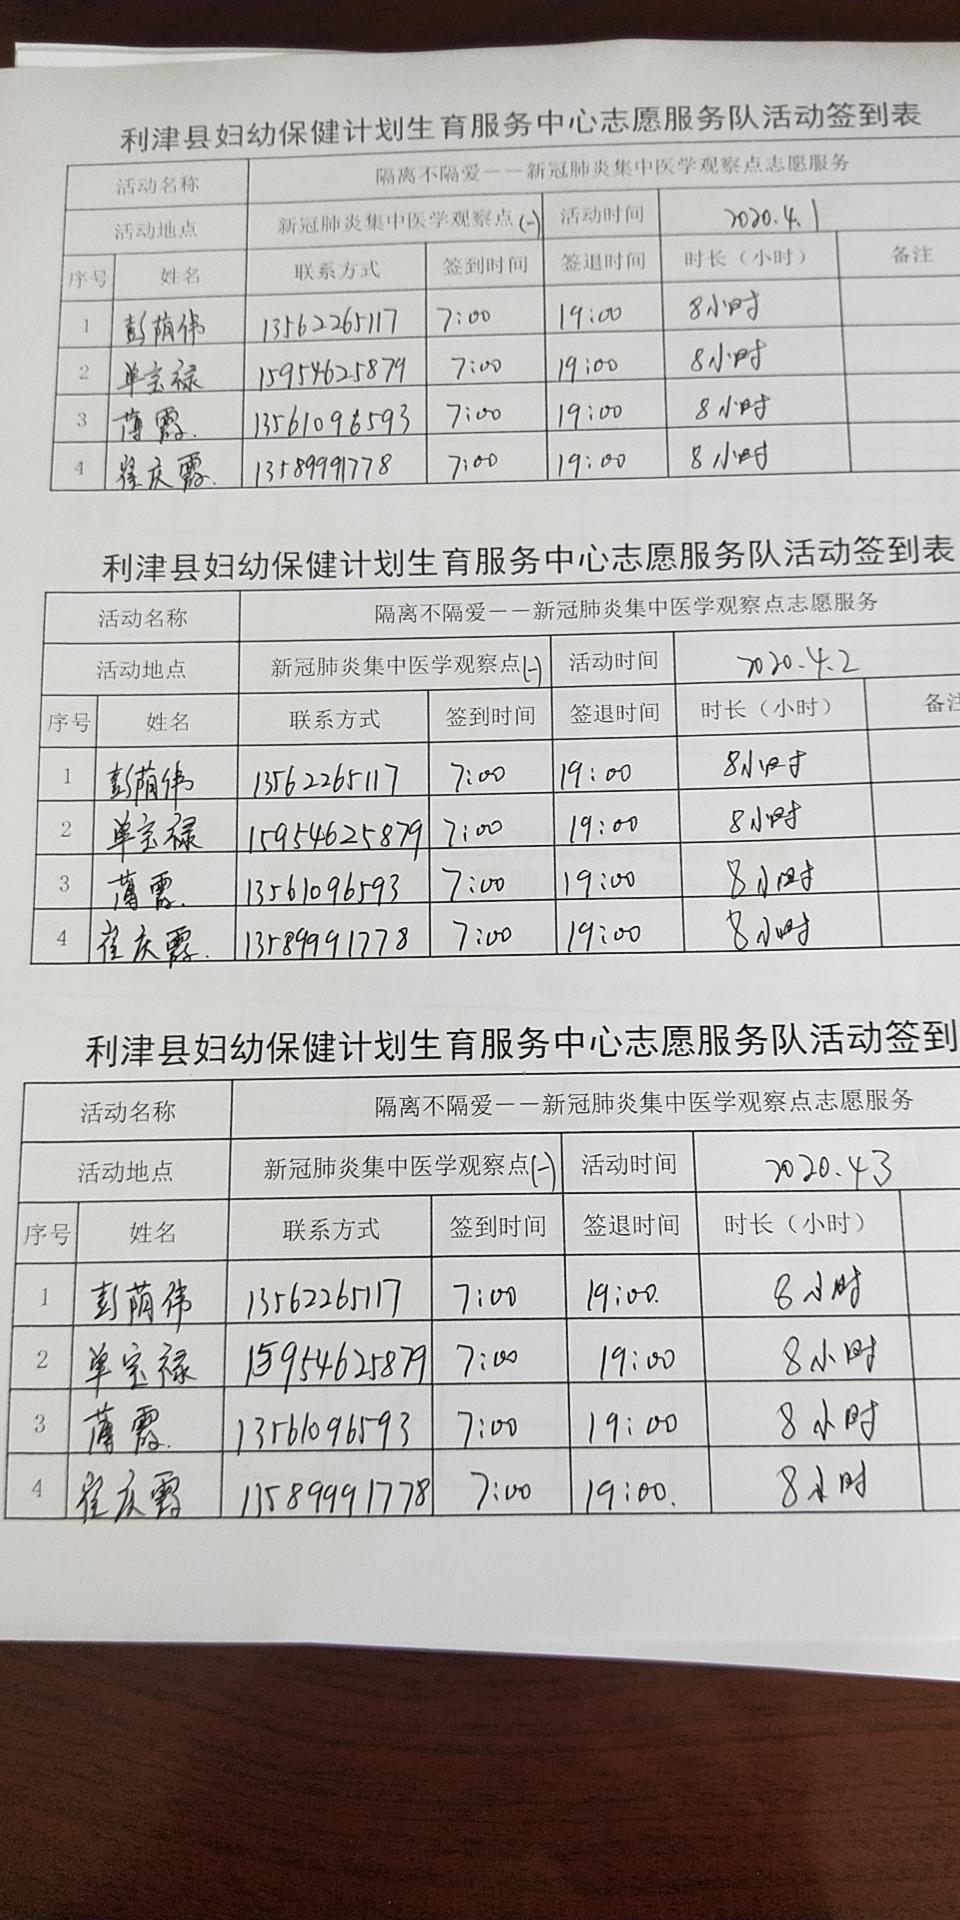 利津县妇幼保健计划生育服务中心志愿服务队活动签到表
活动名称 隔离不隔爱——新冠肺炎集中医学观察点志愿服务
活动地点 新冠肺炎集中医学观察点(一) 活动时间 2020.4.1
序号 姓名 联系方式 签到时间 签退时间 时长（小时） 备注
1 彭荫伟 13562265117 7:00 19:00 8小时
2 单宝禄 15954625879 7:00 19:00 8小时
3 薄霞. 13561096593 7:00 19:00 8小时
4 崔庆霞. 13589991778 7:00 19:00 8小时
利津县妇幼保健计划生育服务中心志愿服务队活动签到表
活动名称 隔离不隔爱——新冠肺炎集中医学观察点志愿服务
活动地点 新冠肺炎集中医学观察点(一) 活动时间 2020.4.2
序号 姓名 联系方式 签到时间 签退时间 时长（小时） 备注
1 彭荫伟 13562265117 7:00 19:00 8小时
2 单宝禄 15954625879 7:00 19:00 8小时
3 薄霞. 13561096593 7:00 19:00 8小时
4 崔庆霞. 13589991778 7:00 19:00 8小时
利津县妇幼保健计划生育服务中心志愿服务队活动签到
活动名称 隔离不隔爱——新冠肺炎集中医学观察点志愿服务
活动地点 新冠肺炎集中医学观察点(一) 活动时间 2020.4.3
序号 姓名 联系方式 签到时间 签退时间 时长（小时）
1 彭荫伟 13562265117 7:00 19:00. 8小时
2 单宝禄 15954625879 7:00 19:00 8小时
3 薄霞. 13561096593 7:00 19:00 8小时
4 崔庆霞 13589991778 7:00 19:00. 8小时